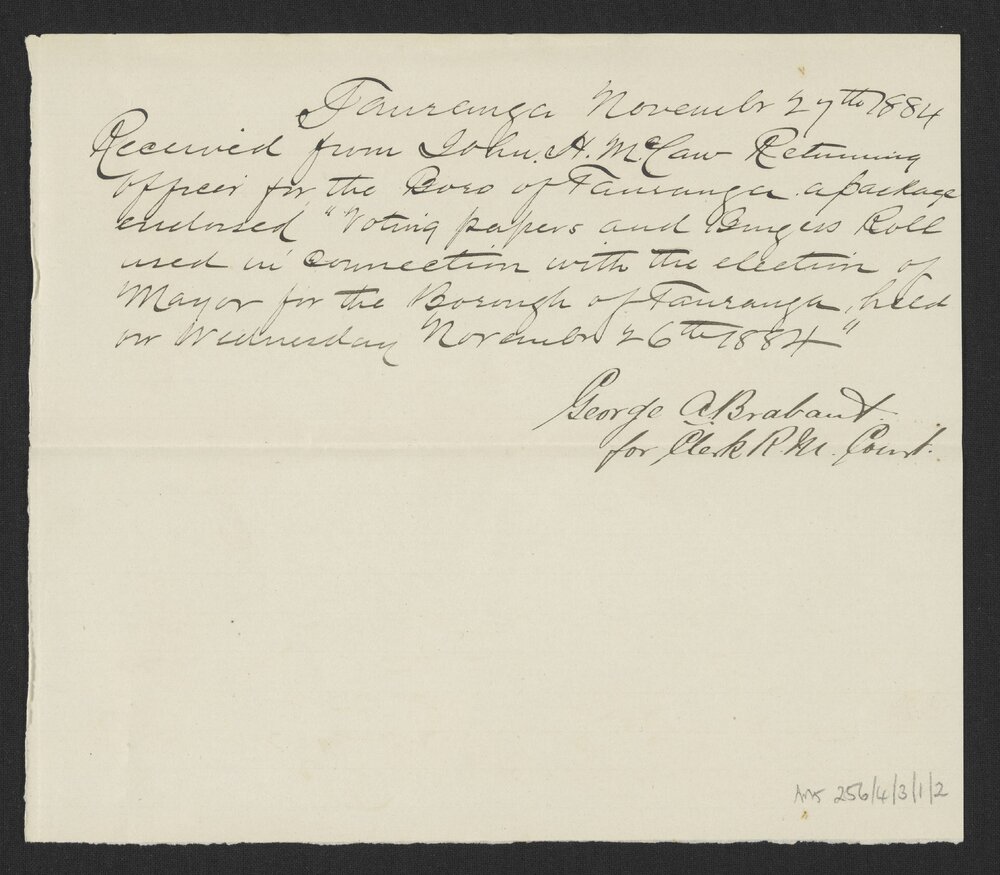 Tauranga November 27th 1884
Received from John. H. McCaw Returning
Officer for the Boro of Tauranga a package
endorsed "Voting papers and Burgess Roll
used in connection with the election of
Mayor for the Borough of Tauranga, held
on Wednesday November 26th 1884"
George A. Brabant
for Clerk R. M. Court.
Ams 256/4/3/1/2